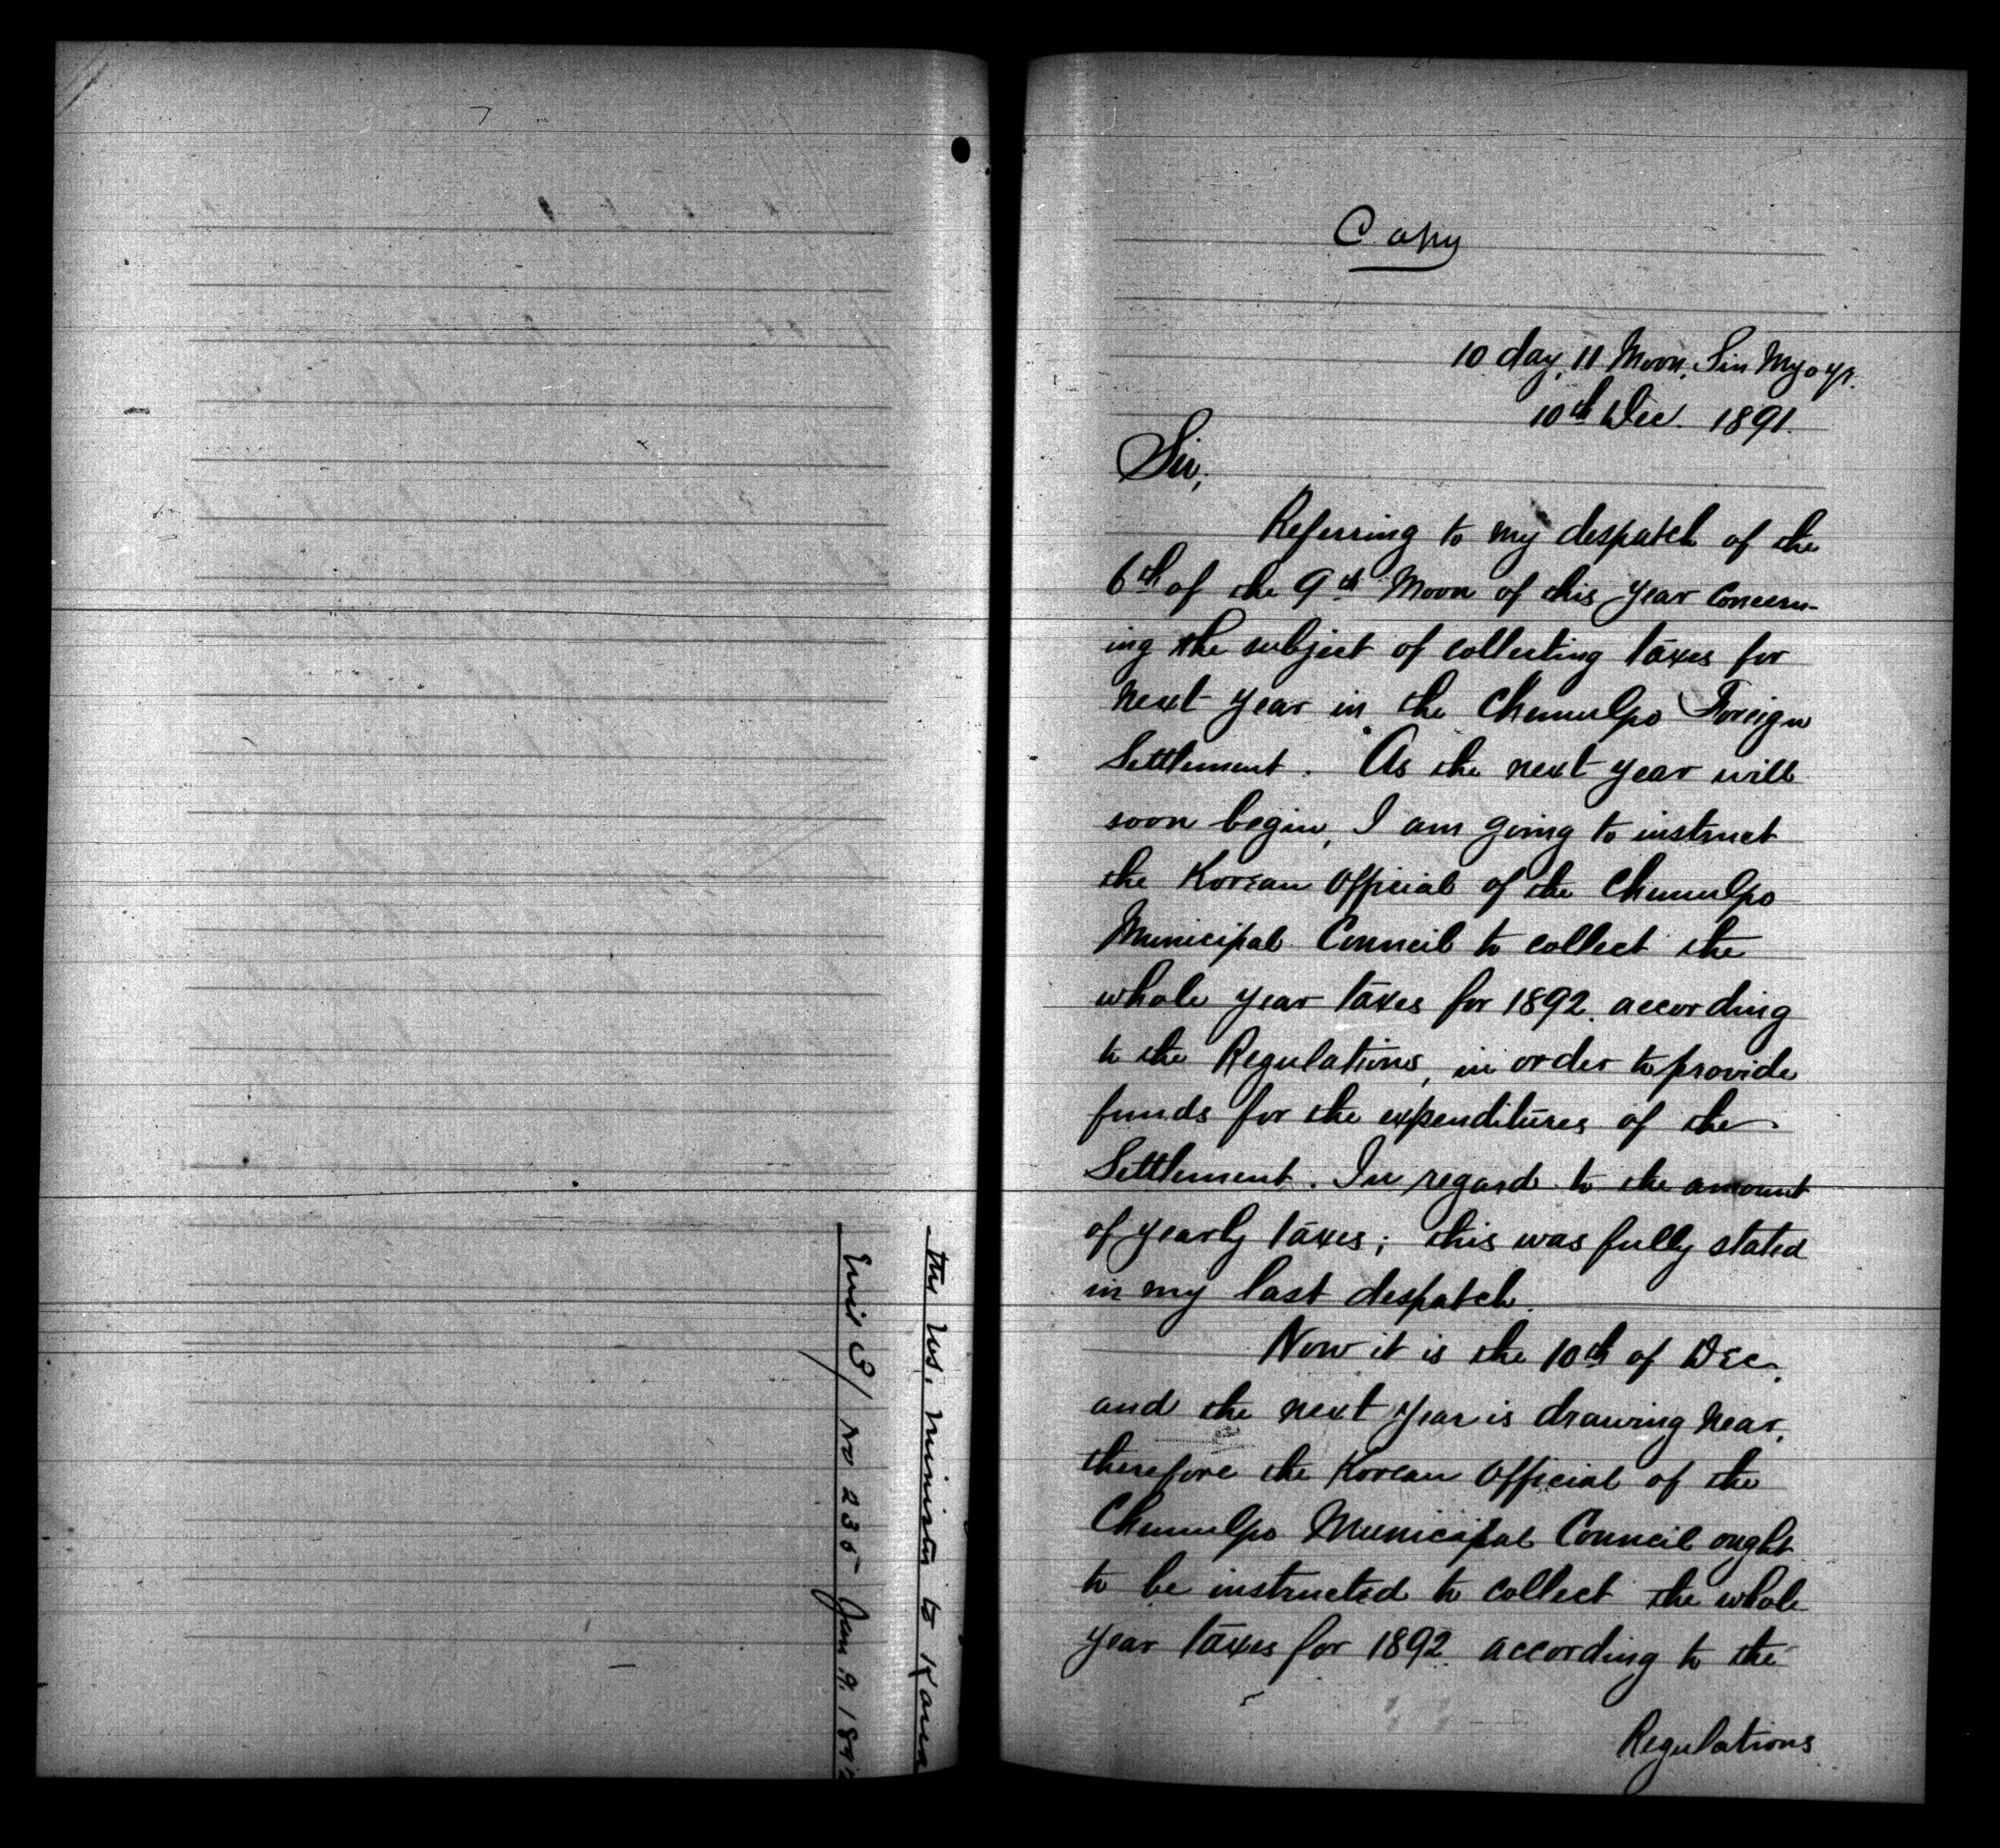 the U.S. minister to Korea
Encl 3/ No 235 Jan 9. 1892
Copy
10 day, 11 Moon, Sin Myo yr.
10th Dec. 1891.
Sir,
Referring to my despatch of the
6th of the 9th Moon of this year concern-
ing the subject of collecting taxes for
next year in the Chemulpo Foreign
Settlement. As the next year will
soon begin, I am going to instruct
the Korean Official of the Chemulpo
Municipal Council to collect the
whole year taxes for 1892. according
to the Regulations, in order to provide
funds for the expenditures of the
Settlement. In regard to the amount
of yearly taxes; this was fully stated
in my last despatch.
Now it is the 10th of Dec.
and the next year is drawing near,
therefore the Korean Official of the
Chemulpo Municipal Council ought
to be instructed to collect the whole
year taxes for 1892. according to the
Regulations